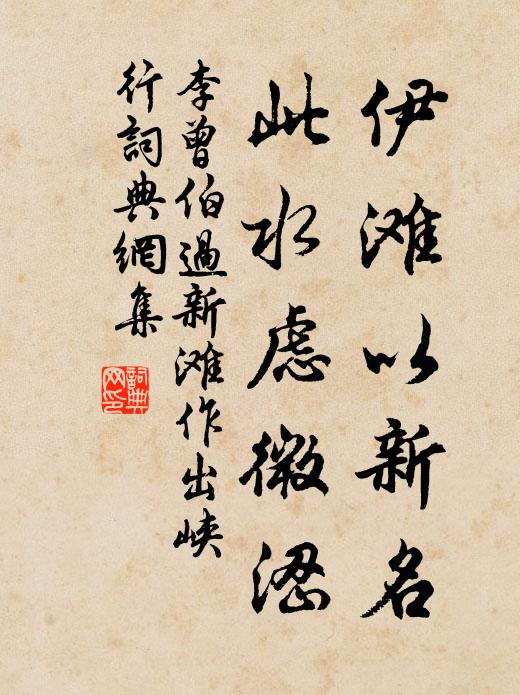 伊滩以新名
此水虑微涩
李曾伯過新滩作出峡
行詞典網集
詞典
网印